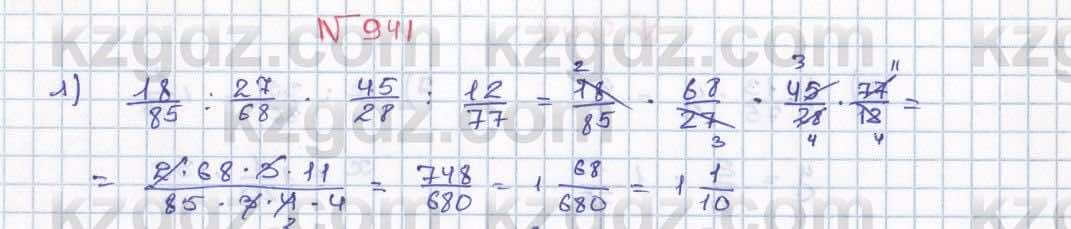 № 941
1) 18/85 : 27/68 · 45/28 : 12/77 = 18/85 · 68/27 · 45/28 · 77/12 =
= 2·68·3·11 / 85·3·4·4 = 748/680 = 1 68/680 = 1 1/10
kzgdz.com kzgdz.com
kzgdz.com
kzgdz.com kzgdz.com